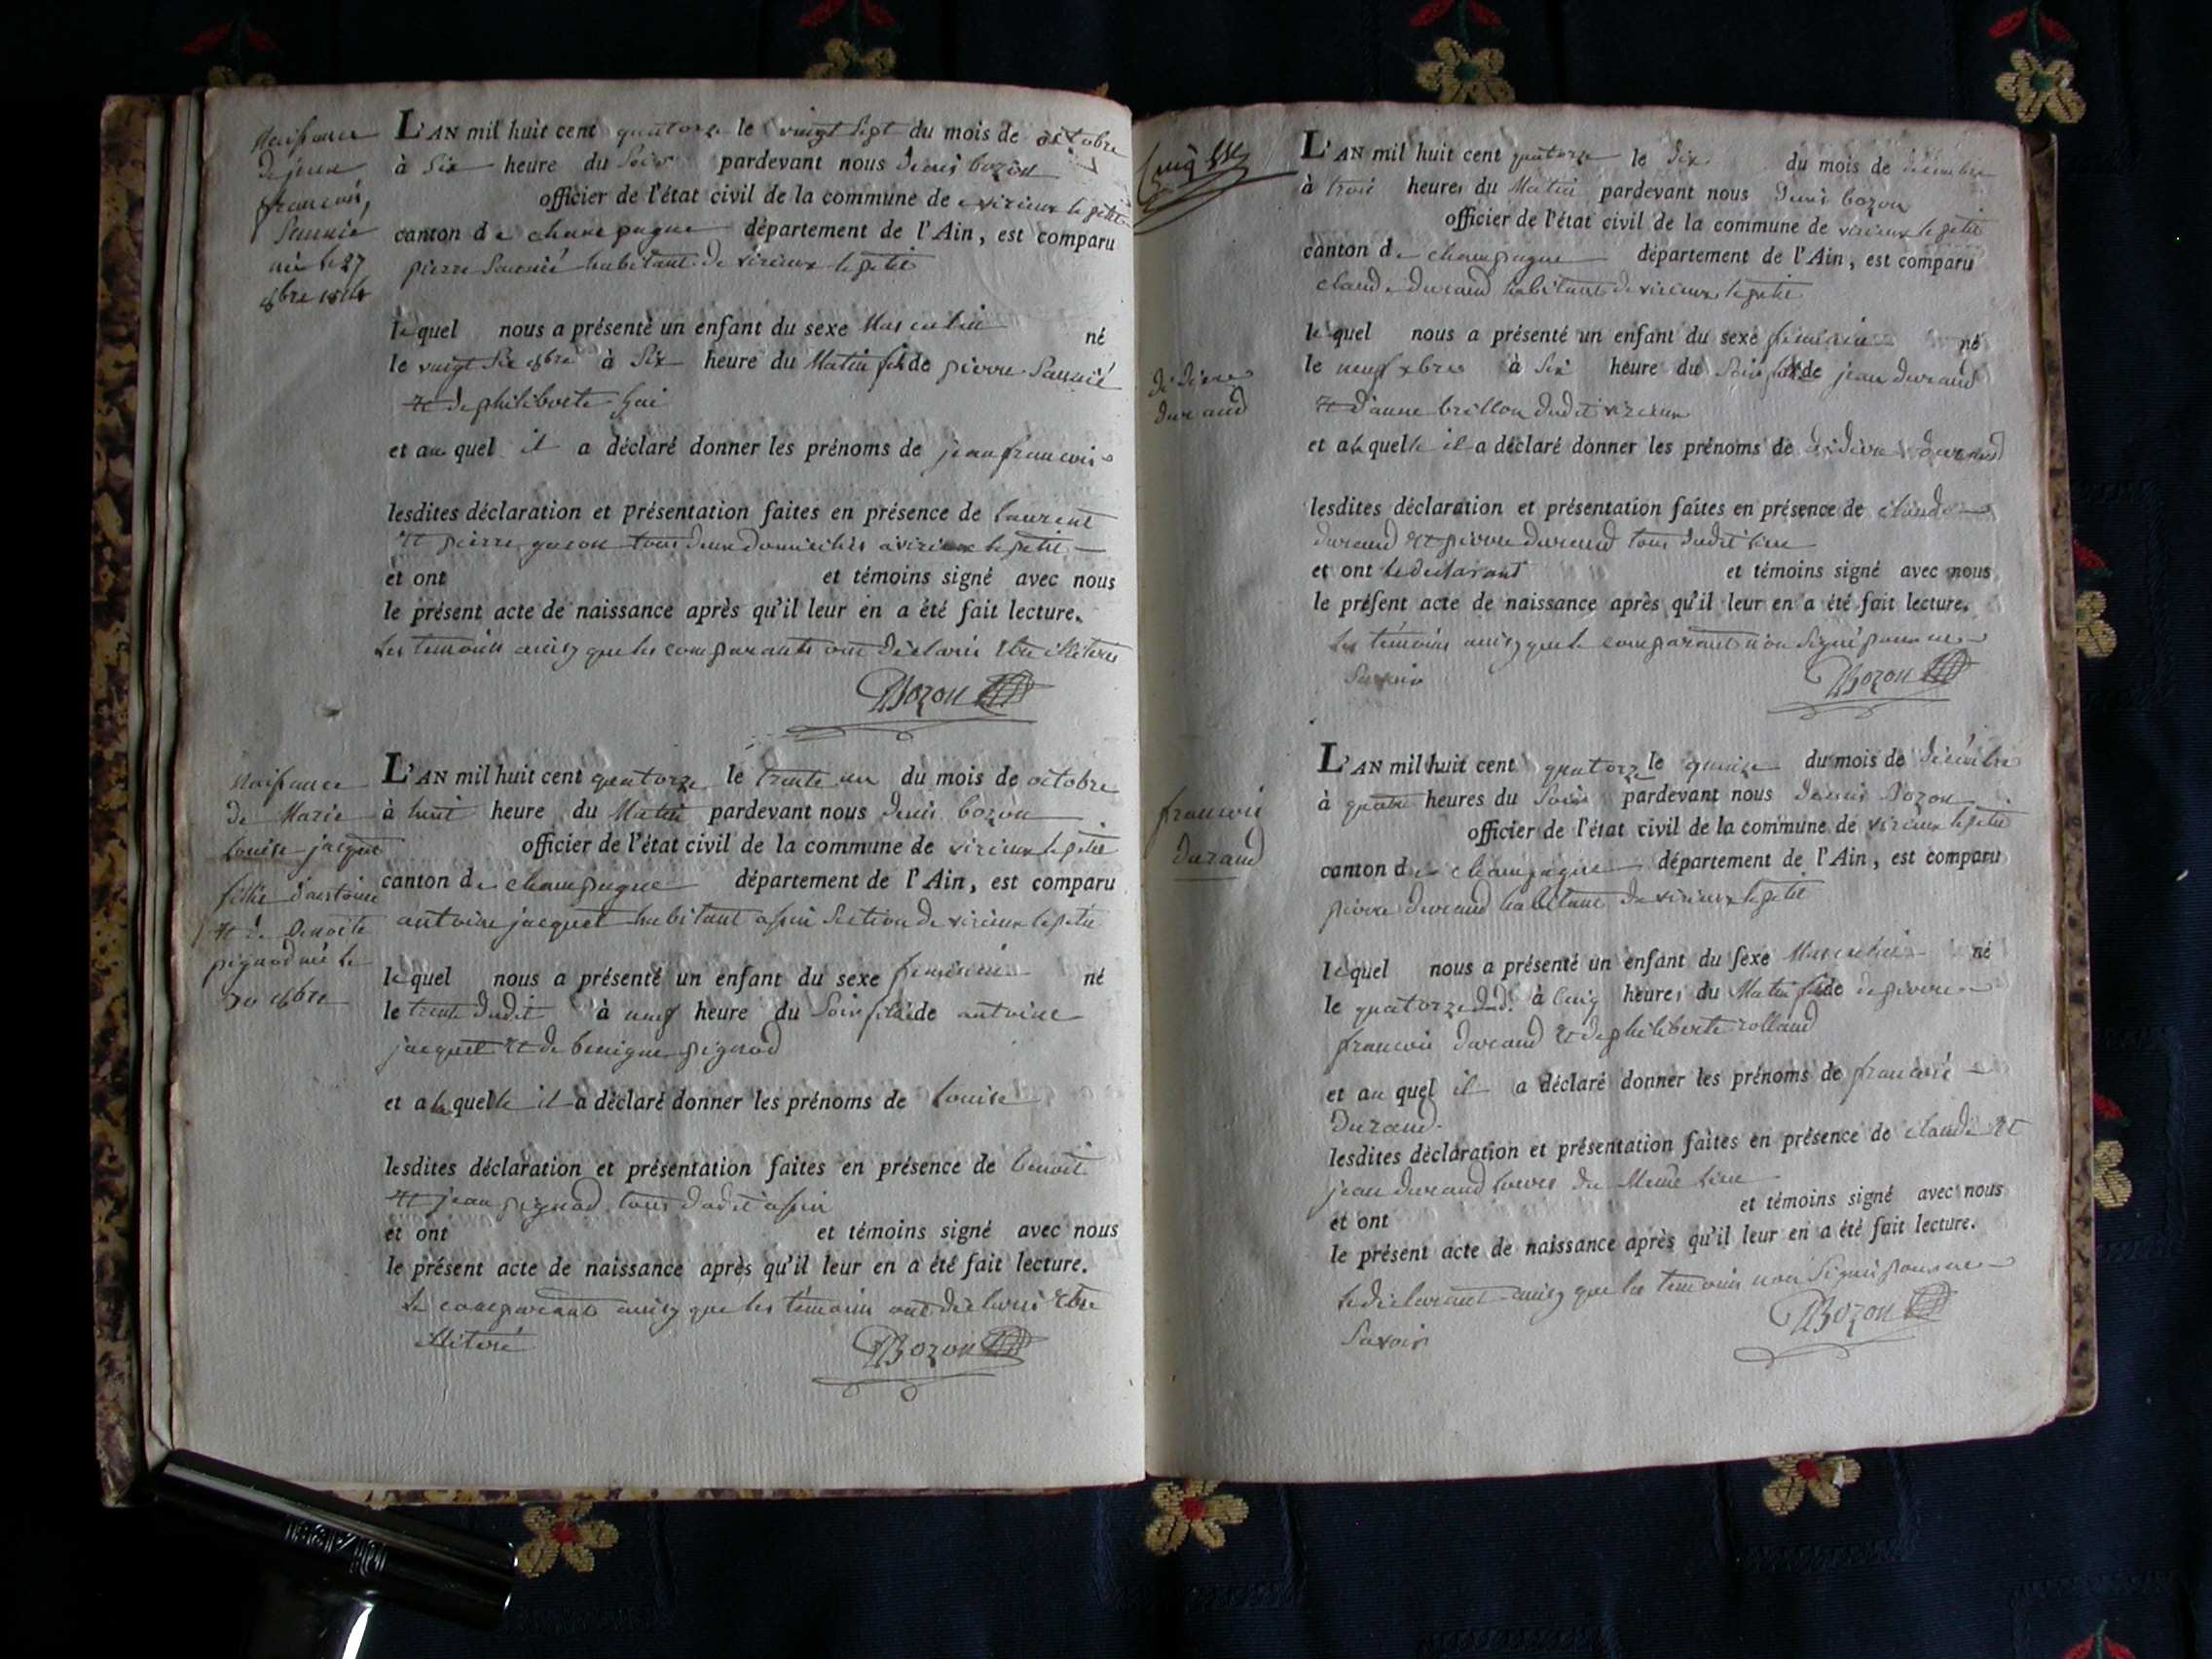 naissance
de jean
francois,
né le 27
8bre 1814
L'AN mil huit cent quatorze le vingt sept du mois de octobre
à six heure du soir pardevant nous denis bozon
officier de l'état civil de la commune de virieux le petit
canton de champagne département de l'Ain, est comparu
pierre habitant de virieux le petit
lequel nous a présenté un enfant du sexe Masculin né
le vingt six 8bre à six heure du Matin fils de pierre
et de philiberte
et au quel il a déclaré donner les prénoms de jean francois
lesdites déclaration et présentation faites en présence de laurent
et pierre tous deux domiciliés a virieux le petit
et ont et témoins signé avec nous
le présent acte de naissance après qu'il leur en a été fait lecture.
les temoins ainsy que les comparants ont déclarés Etre illiterés
DBozon
naissance
de Marie
louise jacquet
fille d'antoine
et de Benoite
pignod né le
30 8bre
L'AN mil huit cent quatorze le trente un du mois de octobre
à huit heure du Matin pardevant nous denis bozon
officier de l'état civil de la commune de virieux le petit
canton de champagne département de l'Ain, est comparu
antoine jacquet habitant assin section de virieux le petit
lequel nous a présenté un enfant du sexe feminin né
le trente dudit à neuf heure du soir fille de antoine
jacquet et de benigne pignod
et a laquelle il a déclaré donner les prénoms de louise
lesdites déclaration et présentation faites en présence de benoit
et jean pignod tous dudit assin
et ont et témoins signé avec nous
le présent acte de naissance après qu'il leur en a été fait lecture.
le comparant ainsy que les témoins ont déclarés Etre
illiteré
DBozon
didiere
durand
L'AN mil huit cent quatorze le dix du mois de décembre
à trois heures du Matin pardevant nous denis bozon
officier de l'état civil de la commune de virieux le petit
canton de champagne département de l'Ain, est comparu
claude durand habitant de virieux le petit
lequel nous a présenté un enfant du sexe feminin né
le neuf xbre à six heure du soir de jean durand
et d'anne brillon dudit virieux
et a laquelle il a déclaré donner les prénoms de didiere durand
lesdites déclaration et présentation faites en présence de claude
durand et pierre durand tous dudit lieu
et ont le declarant et témoins signé avec nous
le présent acte de naissance après qu'il leur en a été fait lecture.
les témoins ainsy que le comparant n'on signé pour ne
savoir
DBozon
francois
durand
L'AN mil huit cent quatorze le quinze du mois de décembre
à quatre heures du soir pardevant nous denis Bozon
officier de l'état civil de la commune de virieux le petit
canton de champagne département de l'Ain, est comparu
pierre durand habitant de virieux le petit
lequel nous a présenté un enfant du sexe Masculin né
le quatorze dud. à cinq heures du Matin fils de de pierre
francois durand et de philiberte rolland
et au quel il a déclaré donner les prénoms de francois
durand.
lesdites déclaration et présentation faites en présence de claude et
jean durand touts du Meme lieu
et ont et témoins signé avec nous
le présent acte de naissance après qu'il leur en a été fait lecture.
le déclarant ainsy que les temoins non signés pour ne
savoir
DBozon